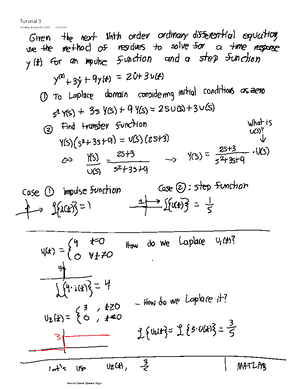 Tutorial 3
Given the next Nnth order ordinary differential equation,
use the method of residues to solve for a time response
y(t) for an impulse function and a step function
ÿ(t) + 3ẏ + 9y(t) = 2u̇ + 3u(t)
① To Laplace domain considering initial conditions as zero
s² Y(s) + 3s Y(s) + 9 Y(s) = 2s U(s) + 3 U(s)
② Find transfer function
What is U(s)?
Y(s)(s²+3s+9) = U(s)(2s+3)
⇔ Y(s)/U(s) = (2s+3)/(s²+3s+9) → Y(s) = (2s+3)/(s²+3s+9) · U(s)
Case ① impulse function
Case ②: step function
L{u(t)} = 1
L{u(t)} = 1/s
U₁(t) = { 4 t=0
0 ∀t≠0
How do we Laplace U₁(t)?
L{4·i(t)} = 4
U₂(t) = { 3, t≥0
0,
- How do we Laplace it?
3
L{U₂(t)} = L{3·U(t)} = 3/s
Let's use U₂(t), 3/s
MATLAB